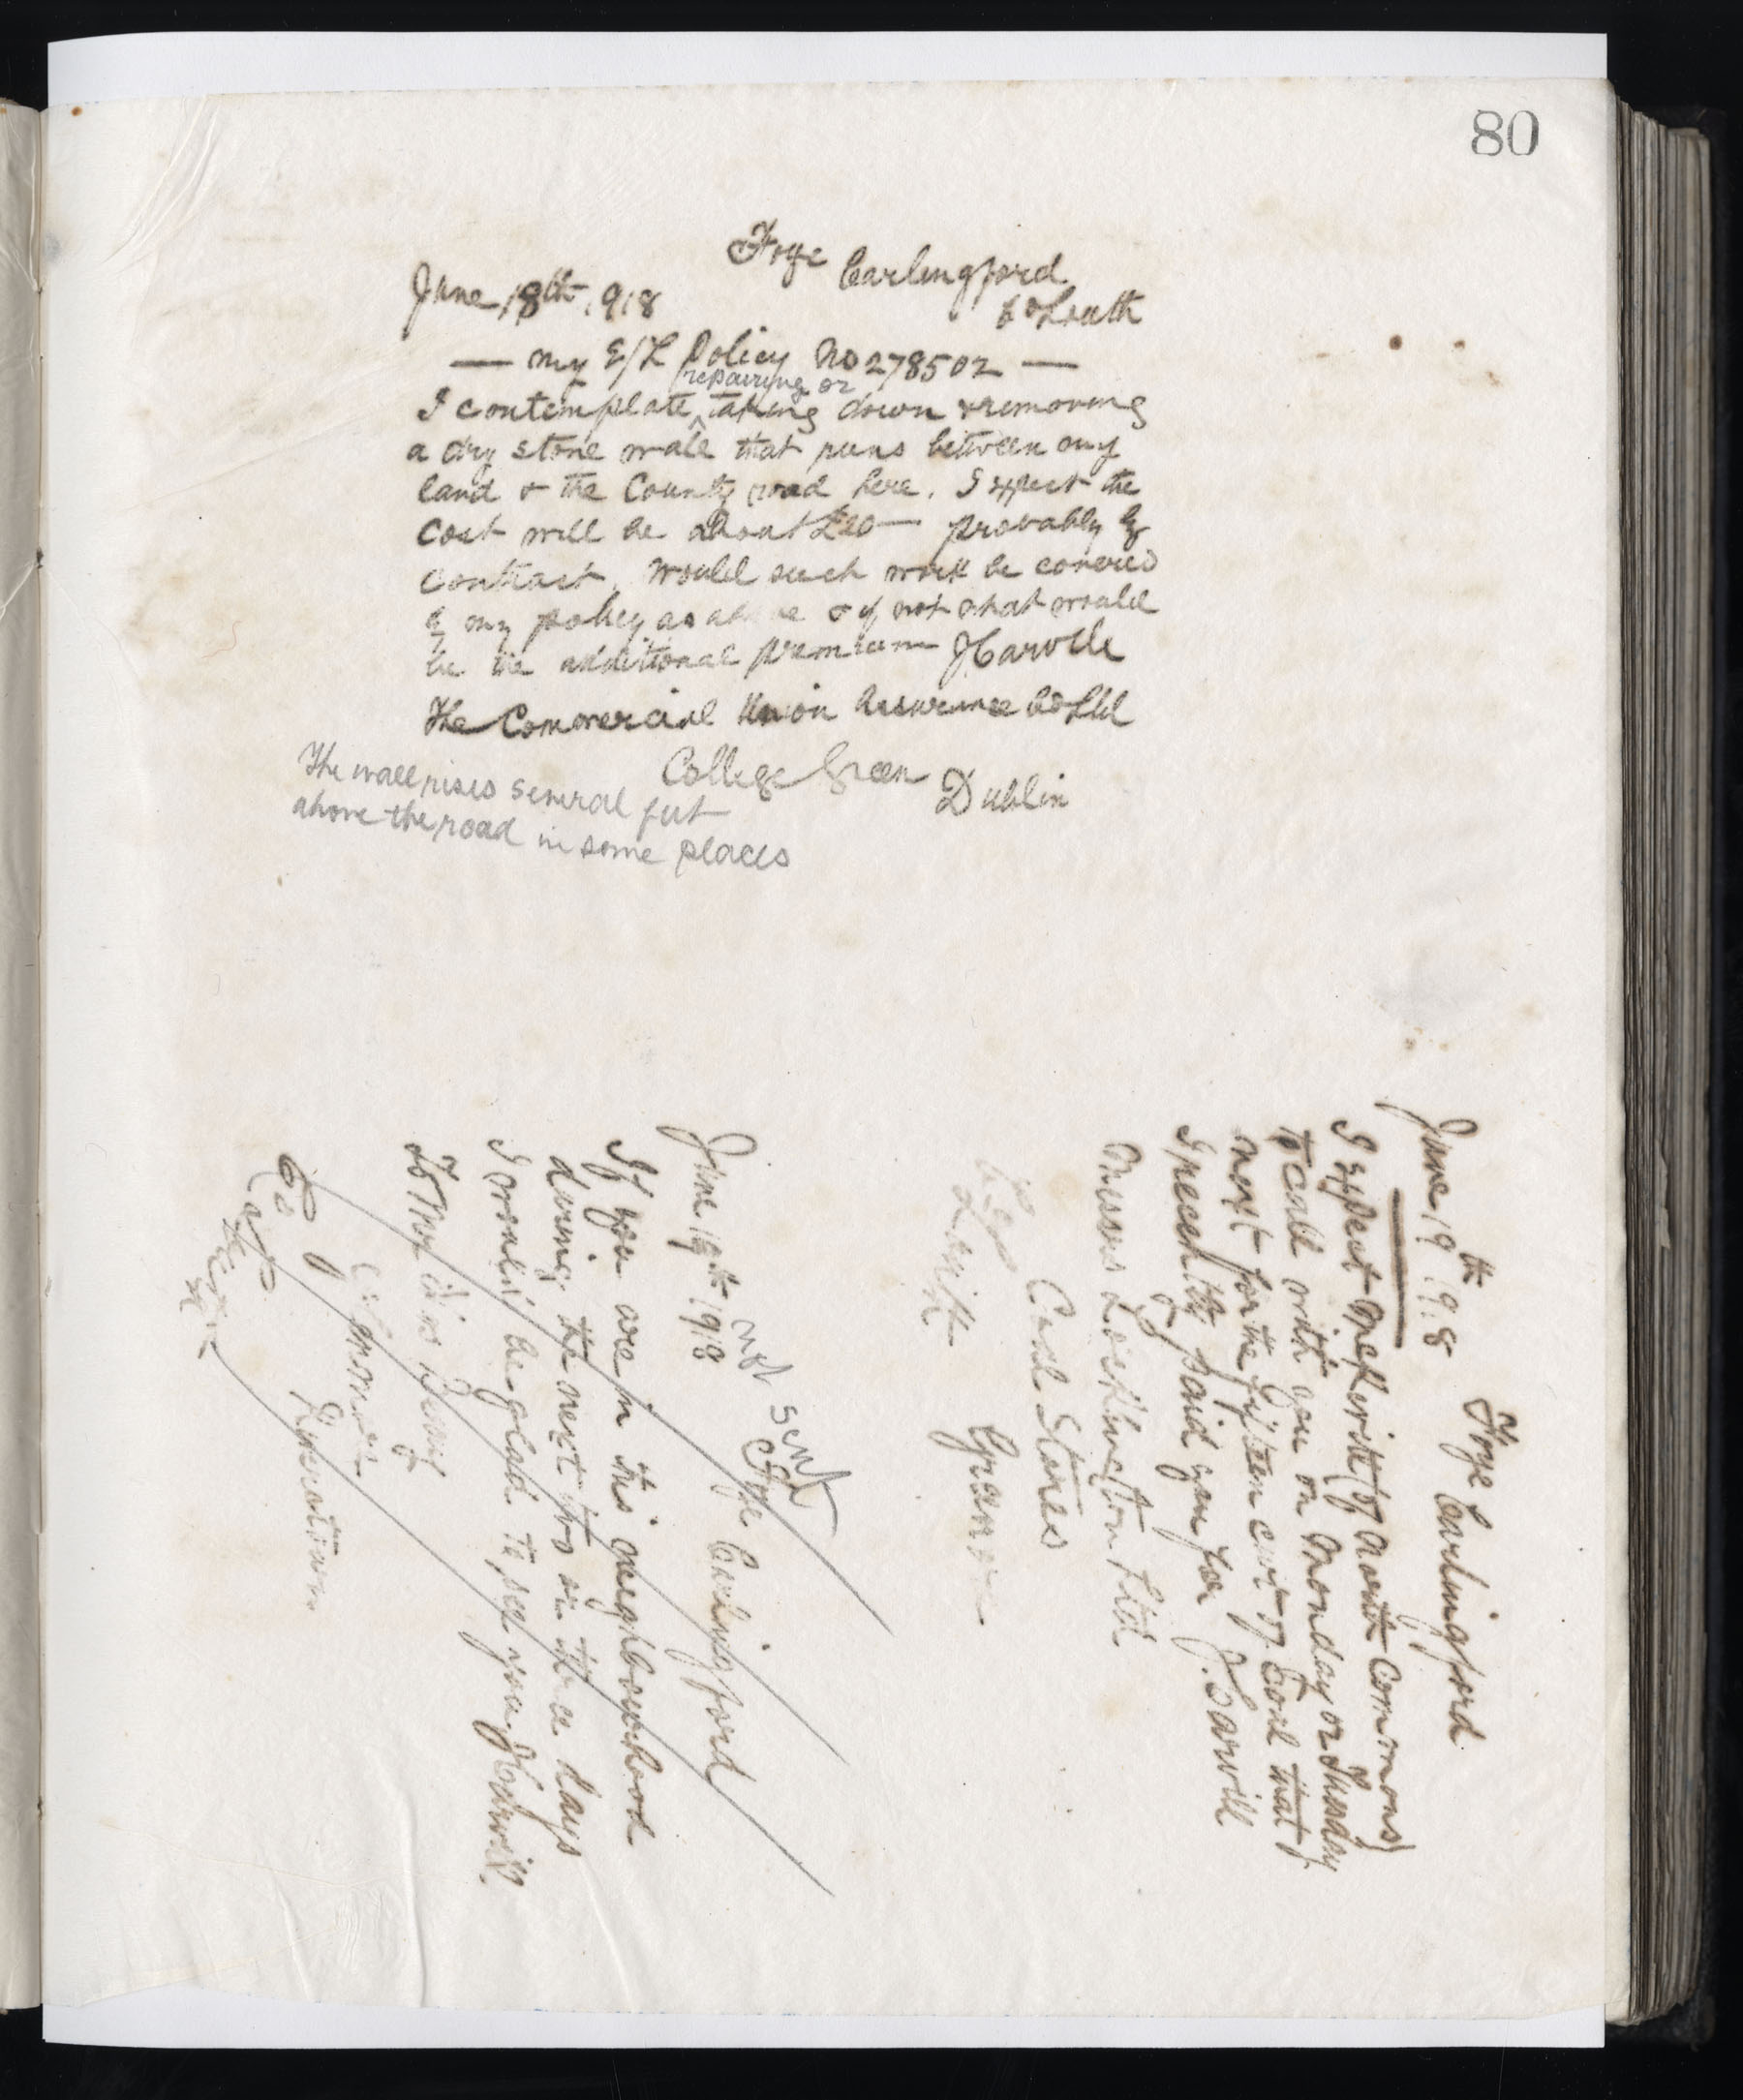 80
Foye Carlingford
June 18th 1918 Co Louth
— my E/L Policy No 278502 —
repairing or
I contemplate taking down & removing
a dry stone wall that runs between my
land & the County road here. I expect the
cost will be about £20 — probably by
contract. Would such work be covered
by my policy as above & if not what would
be the additional premium JCarvill
The Commercial Union Assurance Co Ltd
College Green Dublin
The wall rises several feet
above the road in some places
Foye Carlingford
June 19th 1918
I expect (of North Commons)
to call with you on Monday or Tuesday
next for the fifteen cwt of Coal that
I recently paid you for J.Carvill
Messrs Lockington Ltd
Coal Stores
Granore
Louth
not sent
Foye Carlingford
June 19th 1918
If you are in this neighbourhood
during the next two or three days
I would be glad to see you JCarvill
To Thos
Co